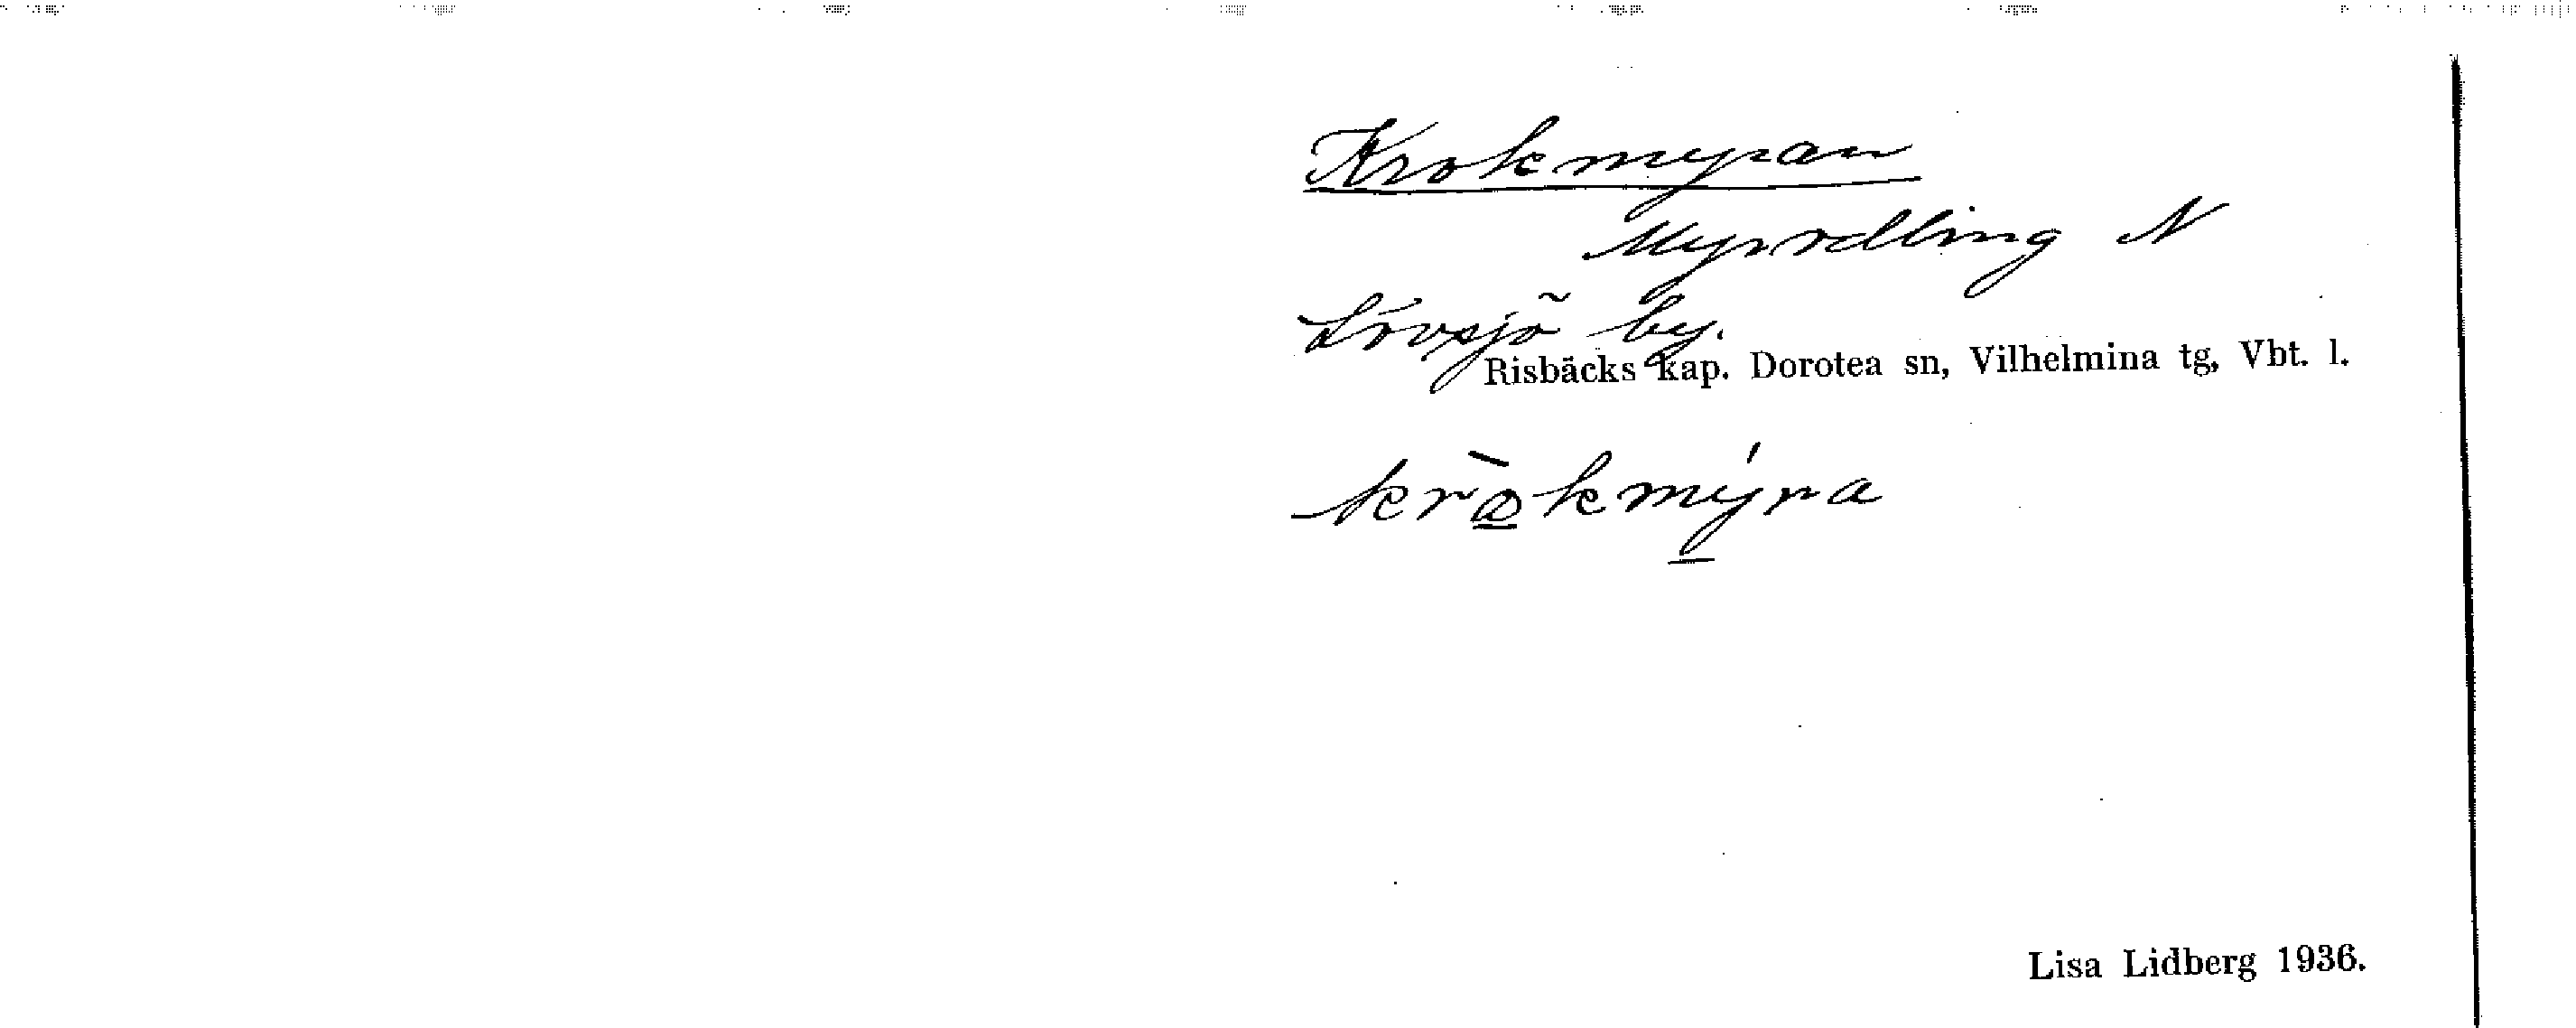 Krokmyran
Myrodling N
Lövsjö by.
Risbäcks kap. Dorotea sn, Vilhelmina tg, Vbt. l.
kròkmýra
Lisa Lidberg 1936.